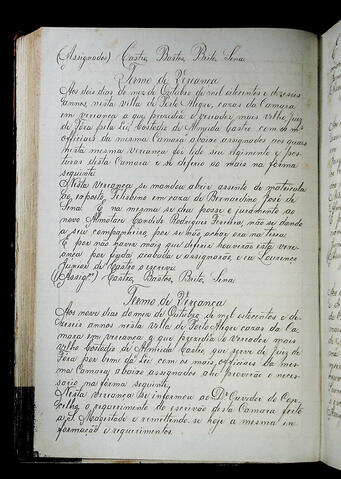 (Assignados) Castro, Bastos, Brito, Sena
Termo de Vereança
Aos dois dias do mez de Outubro de mil oitocentos e dezeseis
annos, nesta villa de Porto Alegre, cazas da Camara
em vereança a que prezidio o vereador mais velho Juiz
de Fora pela Lei, Costodio de Almeida Castro com os mais
officiaes da mesma Camara abaixo asignados nos quaes
nesta mesma vereança foi lido seu regimento e pos-
turas desta Camara e se deferio ao mais na forma
seguinte
Nesta vereança se mandou abrir assento de matricula
ao exposto Felisbino em caza de Bernardino José de
Sena. E na mesma se deu posse e juramento ao
novo Almotace Candido Rodrigues Ferreira, não se dando
a seu companheiro, por se não achar ora na terra.
E por não haver mais que deferir houverão esta vere-
ança por finda acabada e assignarão, e eu Lourenço
Junior de Castro o escrevi
(Assigs.) Castro, Bastos, Brito, Sena.
Termo de Vereança
Aos nove dias do mez de Outubro, de mil oitocentos e de-
zeseis annos nesta villa de Porto Alegre cazas da Ca-
mara em vereança a que prezidio o Vereador mais
velho Costodio de Almeida Castro, que serve de Juiz de
Fora por bem da Lei com os mais officiaes da mes-
ma Camara, abaixo assignados ahi proverão o neces-
sario na forma seguinte,
Nesta vereança se informou ao Dr. Ouvidor da Co-
o requerimento do escrivão desta Camara feito
a S. Magestade e remettendo-se hoje a mesma in-
formação e requerimentos.